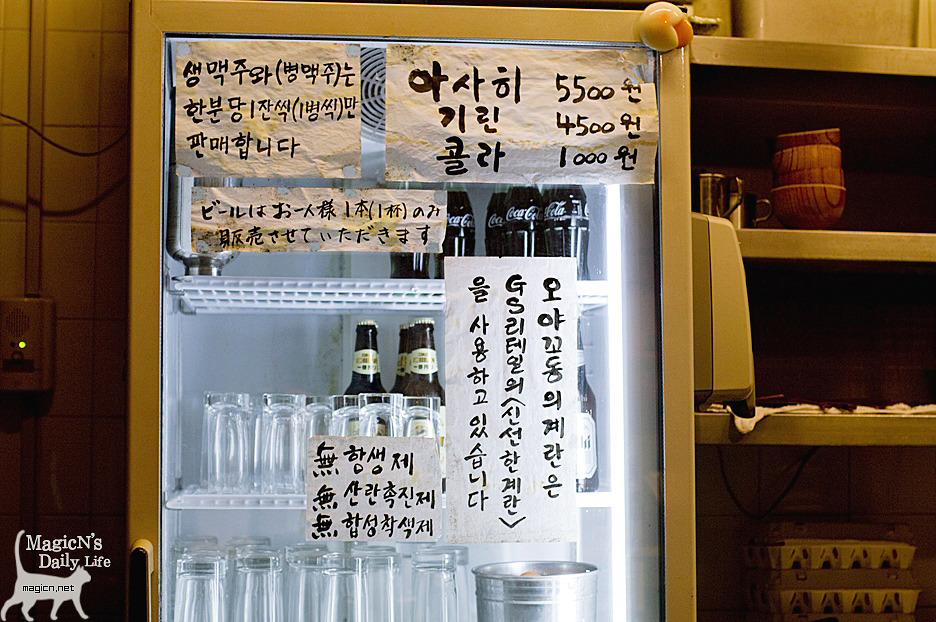 생맥주와(병맥주)는
한분당1잔씩(1병씩)만
판매합니다
아사히 5500원
기린 4500원
콜라 1000원
ビールはお一人様1本(1杯)のみ
販売させていただきます
Coca-Cola
Coca-Cola
오야꼬동의계란은
GS리테일의<신선한계란>
을 사용하고 있습니다
無 항생제
無 산란촉진제
無 합성착색제
MagicN's
Daily Life
magicn.net